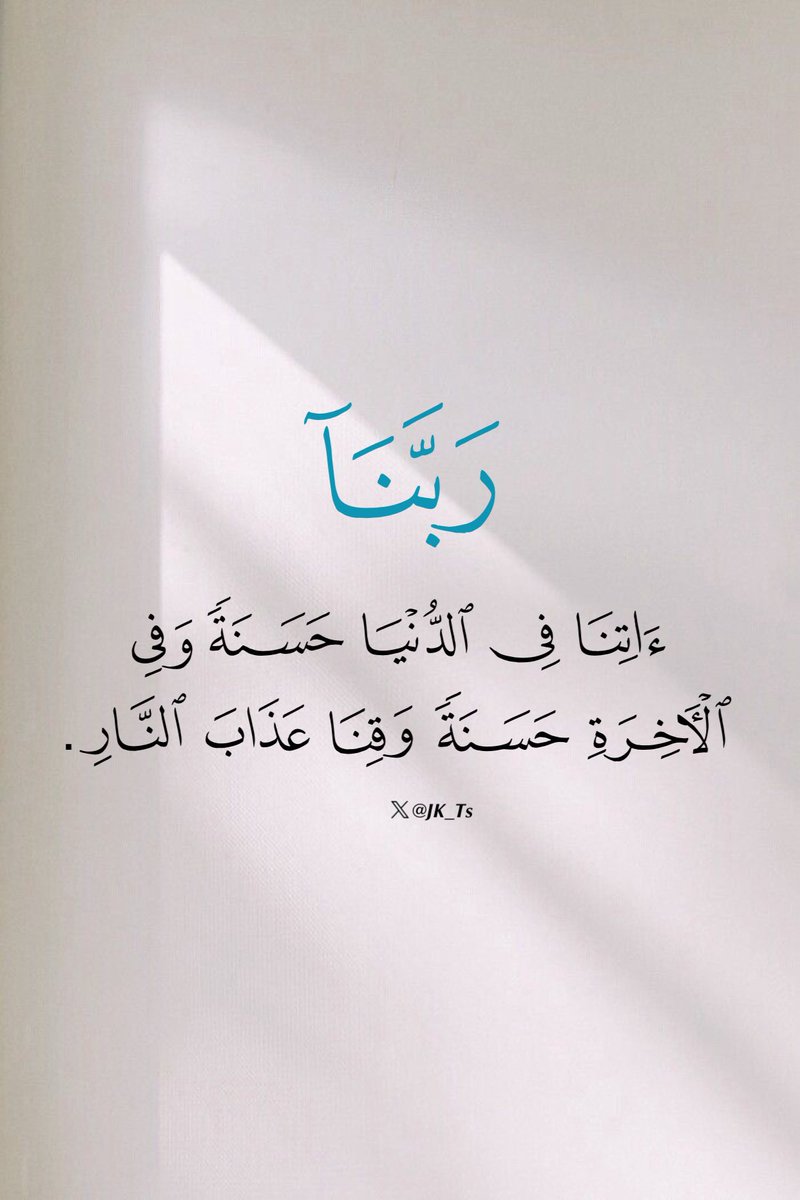 رَبَّنَآ
ءَاتِنَا فِى ٱلدُّنْيَا حَسَنَةً وَفِى
ٱلْأَخِرَةِ حَسَنَةً وَقِنَا عَذَابَ ٱلنَّارِ.
𝕏 @JK_Ts